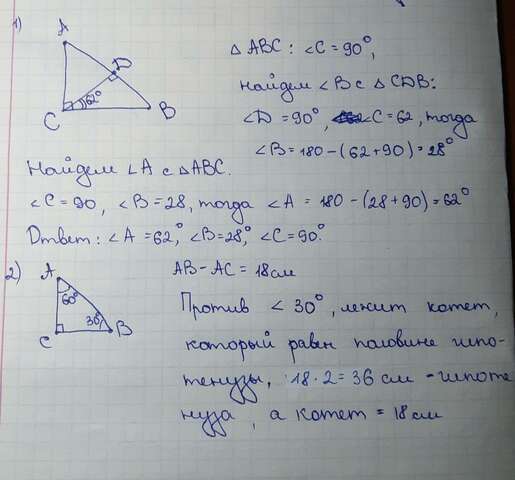 1)
A
D
62°
C
B
△ ABC: ∠C = 90°,
найдем ∠B с △ CDB:
∠D = 90°, ∠C = 62, тогда
∠B = 180 - (62 + 90) = 28°
Найдем ∠A с △ABC.
∠C = 90, ∠B = 28, тогда ∠A = 180 - (28 + 90) = 62°
Ответ: ∠A = 62°, ∠B = 28°, ∠C = 90°.
2)
A
60°
30°
C
B
AB - AC = 18 см
Против ∠ 30°, лежит котет,
который равен половине гипо-
тенузы, 18 · 2 = 36 см - гипоте
нуза, а котет = 18 см